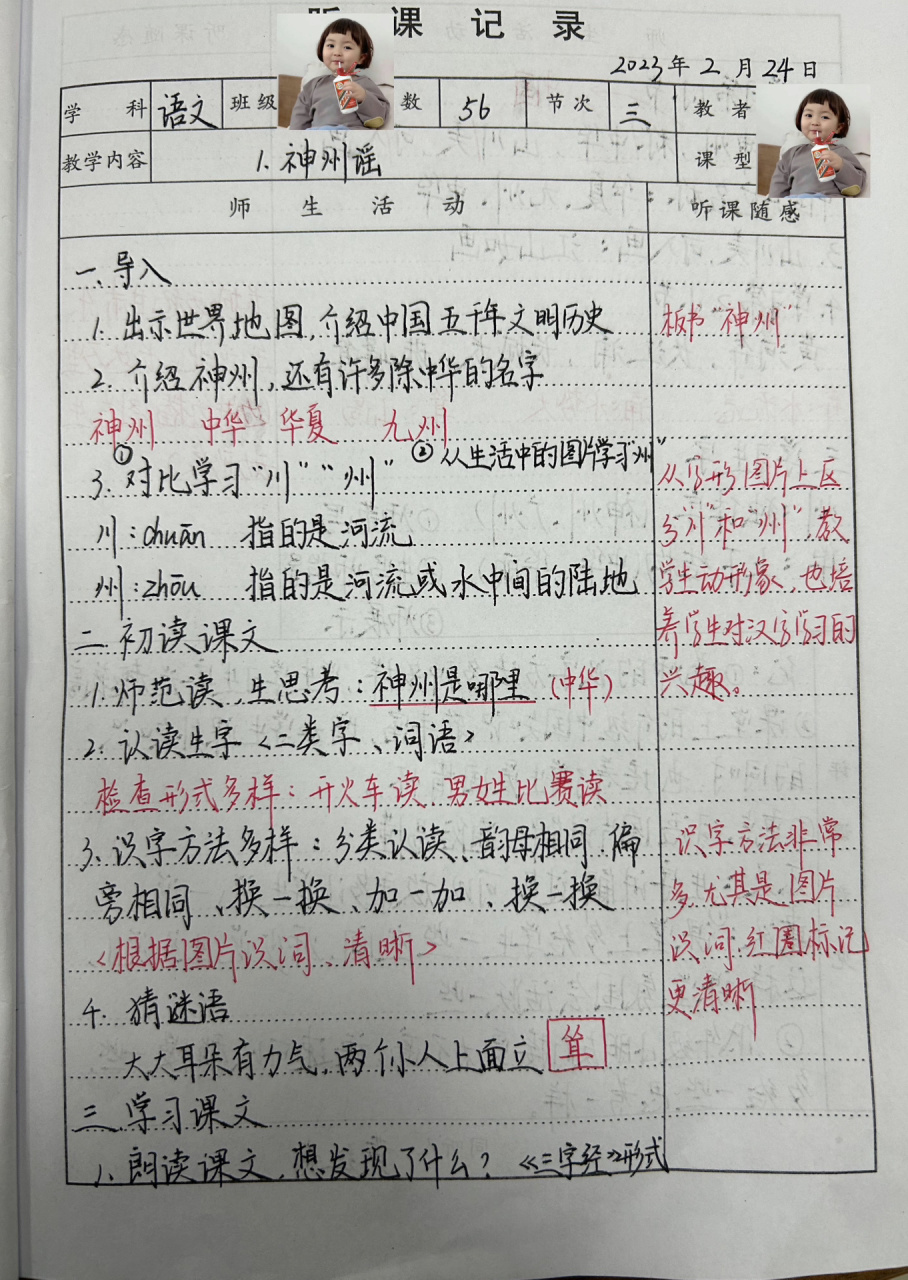 听课记录
2023年2月24日
学科 语文 班级 数 56 节次 三 教者
教学内容 1.神州谣 课型
师生活动 听课随感
一.导入
1.出示世界地图,介绍中国五千年文明历史 板书“神州”
2.介绍神州,还有许多除中华的名字
神州 中华 华夏 九州
① ②从生活中的图片学习“州”
3.对比学习“川”“州” 从字形图片上区
川:chuān 指的是河流 分“川”和“州”,教
州:zhōu 指的是河流或水中间的陆地 学生动形象,也培
二.初读课文 养学生对汉字学习的
1.师范读,生思考:神州是哪里(中华) 兴趣。
2.认读生字<二类字、词语>
检查形式多样:开火车读 男女生比赛读
3.识字方法多样:分类认读、韵母相同 偏 识字方法非常
旁相同、换一换、加一加、换一换 多尤其是图片
<根据图片识词、清晰> 识词.红圈标记
4.猜谜语 更清晰
大大耳朵有力气,两个小人上面立 耸
三.学习课文
1.朗读课文,想发现了什么?《三字经》形式